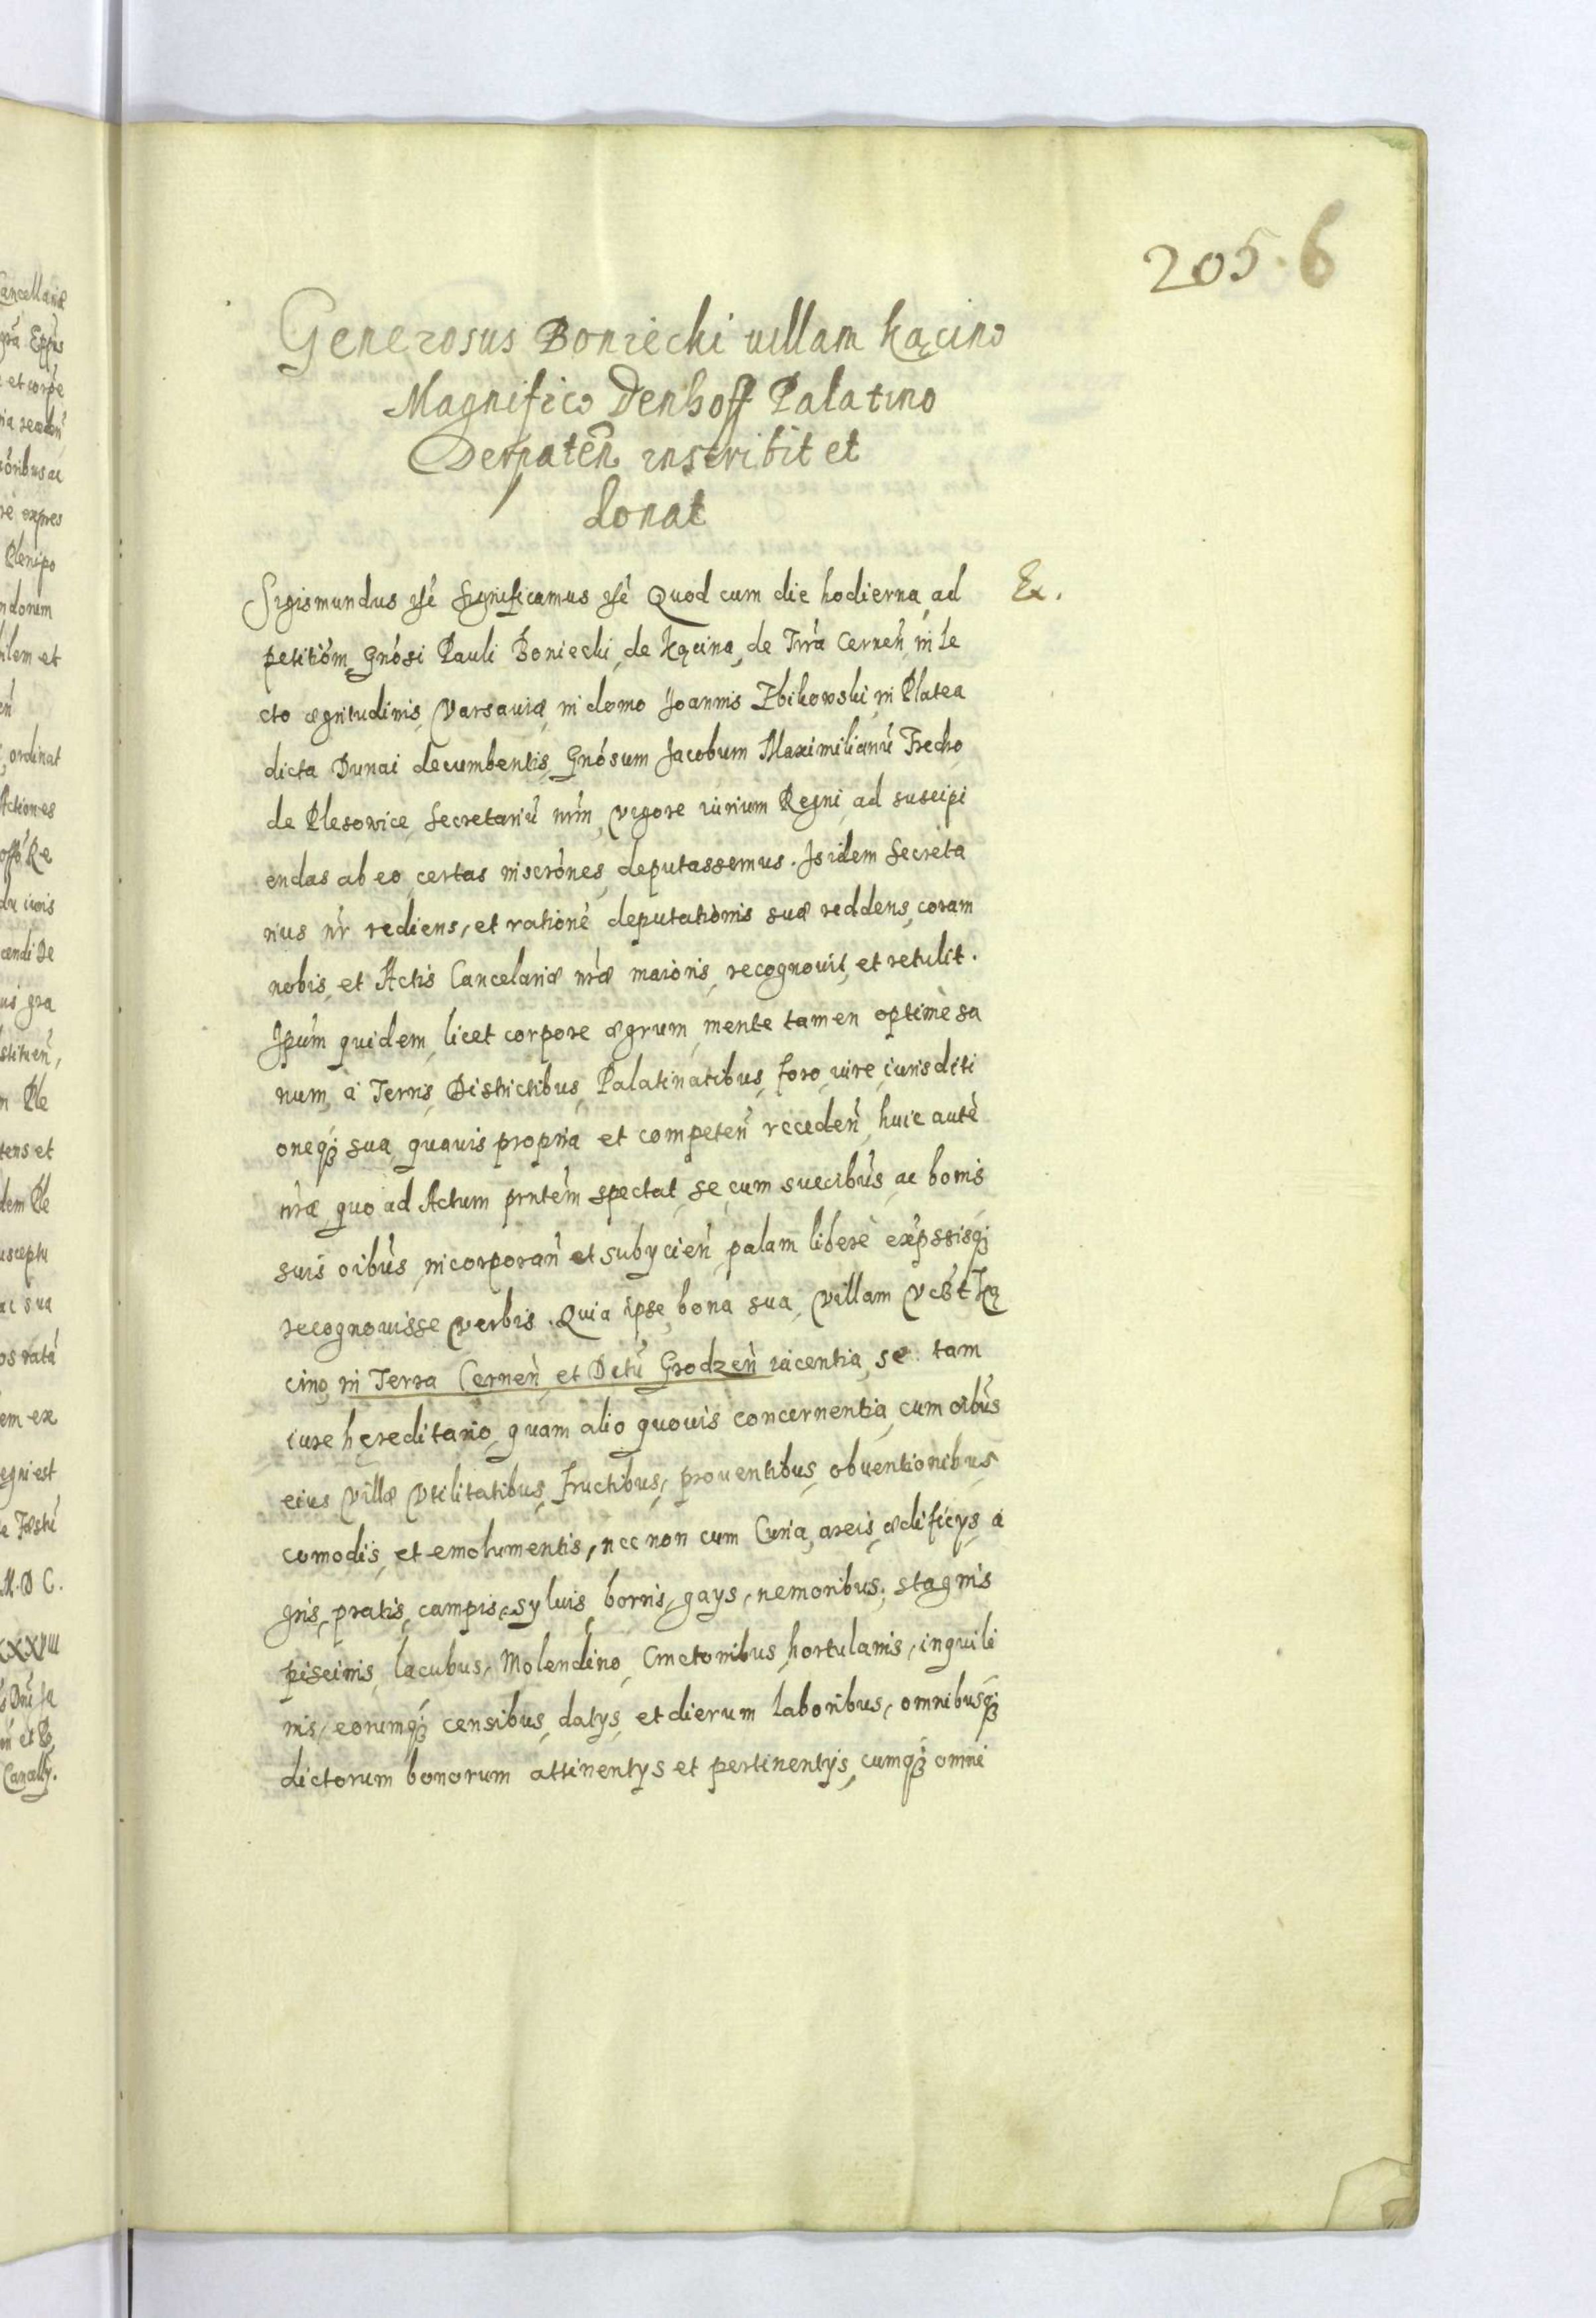 205. 6
Generosus Boniecki villam Kącino
Magnifico Denhoff Palatino
Derpateñ inscribit et
donat
Sigismundus Significamus Quod cum die hodierna, ad
Ex.
petitióm Gnósi Pauli Boniecki, de Kącina, de Trrá Cerneń, in le
cto ægritudinis, Varsauiæ, in domo Joannis Zbikowski, in Platea
dicta Dunai decumbentis, Gnósum Jacobum Maximilianú Fredro
de Plesowice, Secretariú nrm, vigore iurium Regni, ad suscipi
endas ab eo, certas inscrónes, deputassemus. Is idem Secreta
rius nr rediens, et rationé deputationis suæ reddens, coram
nobis, et Actis Cancelariæ nræ maioris, recognouit, et retulit.
Ipúm quidem, licet corpore ægrum, mente tamen optimè sa
num, à Terris, Districtibus, Palatinatibus, foro, iure, iurisditi
oneq3 sua, quauis propria et competeń recedeń, huic auté
nræ quo ad Actum prntém spectat, se, cum succibús, ac bonis
suis oibús, incorporań et subycień, palam liberè expssisq3
recognouisse verbis. Quia ipse, bona sua, villam vcst Ką
cino, in Terra Cerneń, et Dctú Grodzeń iacentia, se tam
iure hęreditario, quam alio quouis concernentia, cum oibús
eius villæ vtilitatibus, fructibus, prouentibus, obuentionibus
comodis, et emolumentis, nec non cum Curia, areis, ædificys, a
gris, pratis, campis, syluis, borris, gays, nemoribus, stagnis
piscinis, lacubus, Molendino, Cmetonibus, hortulanis, inquili
nis, eorumq3 censibus, datys, et dierum laboribus, omnibusq3
dictorum bonorum attinentys et pertinentys, cumq3 omni